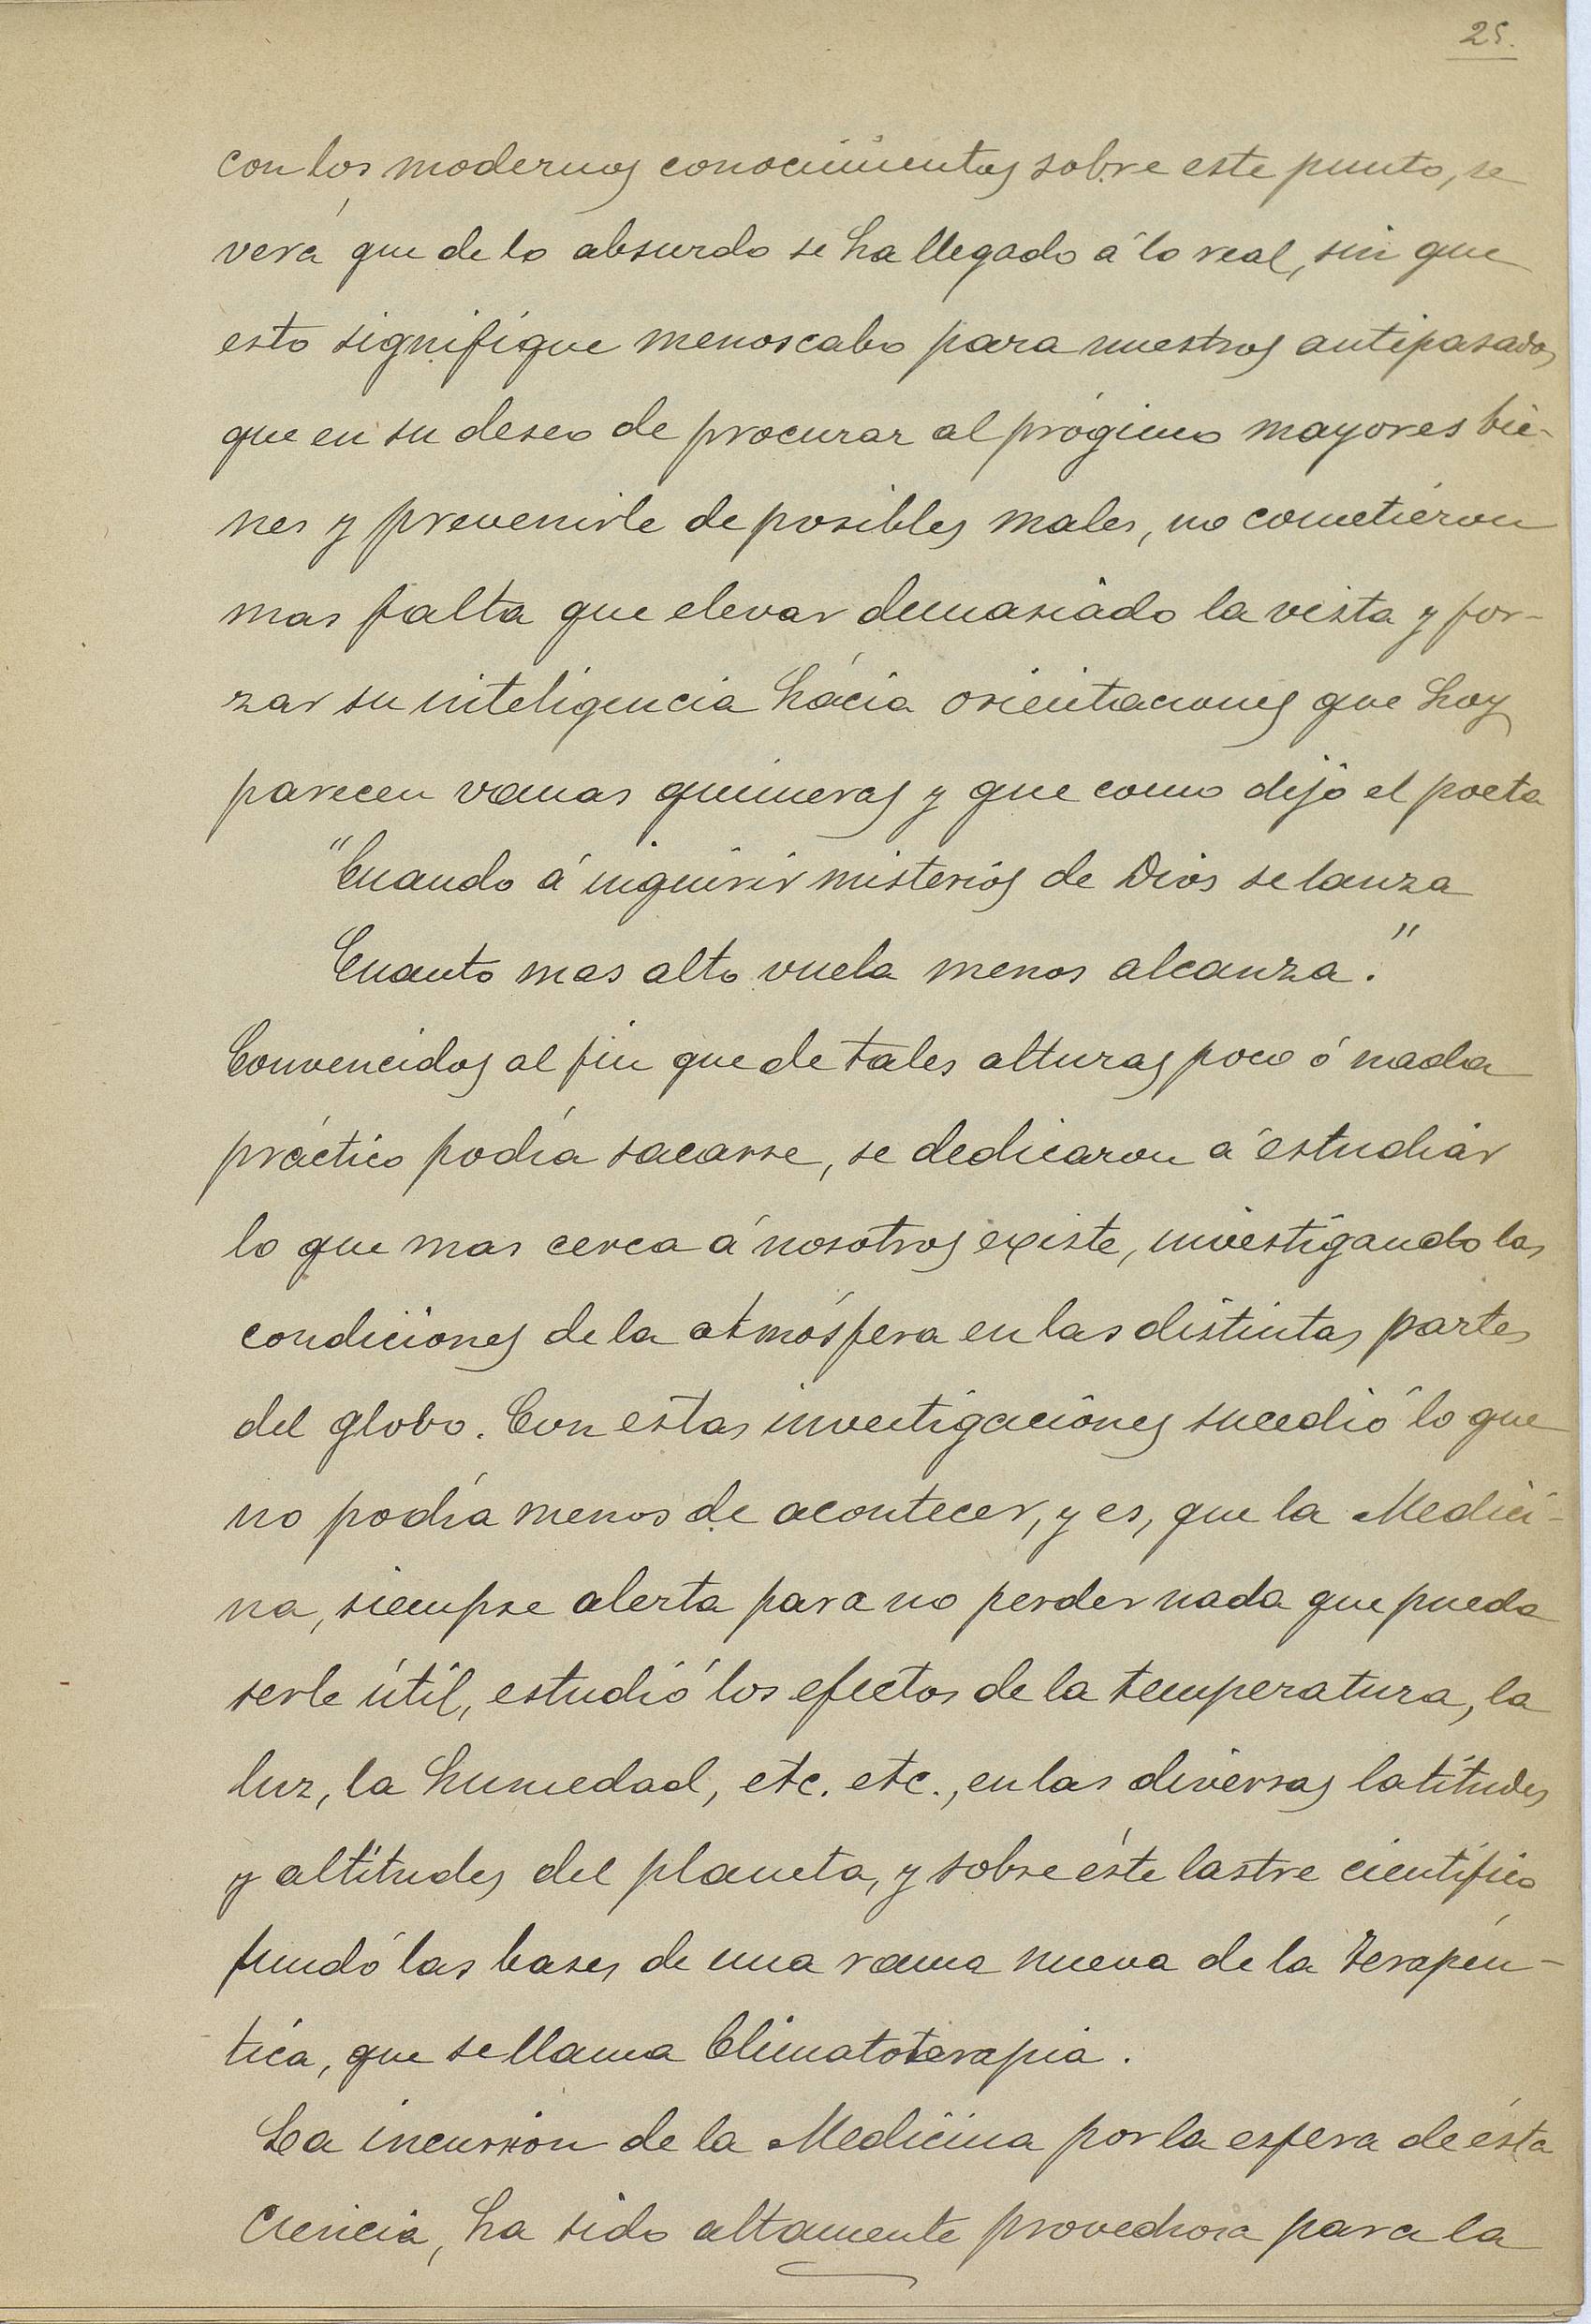 25.
con los modernos conocimientos sobre este punto, se
verá que de lo absurdo se ha llegado á lo real, sin que
esto signifique menoscabo para nuestros antipasados
que en su deseo de procurar al prógimo mayores bie-
nes y prevenirle de posibles males, no cometieron
mas falta que elevar demasiado la vista y for-
zar su inteligencia hácia orientaciones que hoy
parecen vanas quimeras y que como dijo el poeta
"Cuando á inquirir misterios de Dios se lanza
Cuanto mas alto vuela menos alcanza."
Convencidos al fin que de tales alturas poco ó nada
práctico podía sacarse, se dedicaron á estudiar
lo que mas cerca á nosotros existe, investigando las
condiciones de la atmósfera en las distintas partes
del globo. Con estas investigaciones sucedió lo que
no podía menos de acontecer, y es, que la Medici-
na, siempre alerta para no perder nada que pueda
serle útil, estudió los efectos de la temperatura, la
luz, la humedad, etc. etc., en las diversas latitudes
y altitudes del planeta, y sobre éste lastre científico
fundó las bases de una rama nueva de la Terapéu-
tica, que se llama Climatoterapia.
La incursion de la Medicina por la esfera de ésta
Ciencia, ha sido altamente provechosa para la